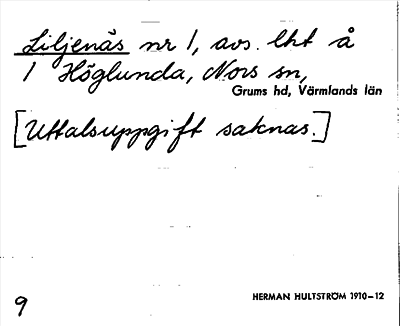 Liljenäs nr 1, avs. lht å
1 Höglunda, Nors sn,
Grums hd, Värmlands län
[Uttalsuppgift saknas.]
HERMAN HULTSTRÖM 1910–12
9